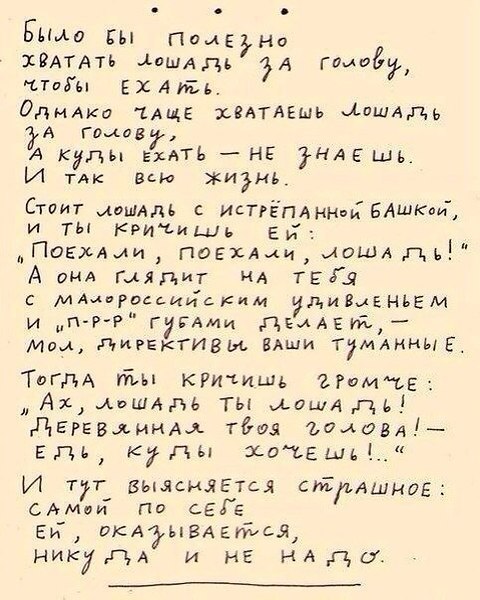 • • •
Было бы полезно
хватать лошадь за голову,
чтобы ехать.
Однако чаще хватаешь лошадь
за голову,
а куды ехать — не знаешь.
И так всю жизнь.
Стоит лошадь с истрёпанной башкой,
и ты кричишь ей:
„Поехали, поехали, лошадь!“
А она глядит на тебя
с малороссийским удивленьем
и „п-р-р“ губами делает, —
мол, директивы ваши туманные.
Тогда ты кричишь громче:
„Ах, лошадь ты лошадь!
Деревянная твоя голова! —
Едь, куды хочешь!..“
И тут выясняется страшное:
самой по себе
ей, оказывается,
никуда и не надо.